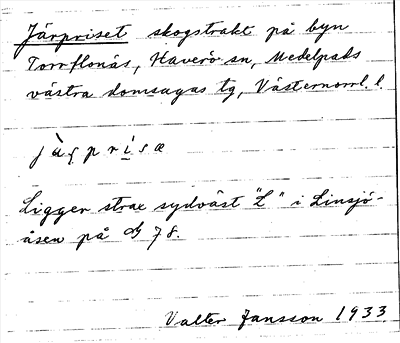 Järpriset skogstrakt på byn
Torrflonäs, Haverö sn, Medelpads
västra domsagas tg, Västernorrl. l.
jä̀r̨pri̱sæ
Ligger strax sydväst "L" i Linsjö-
åsen på GJ 78.
Valter Jansson 1933.